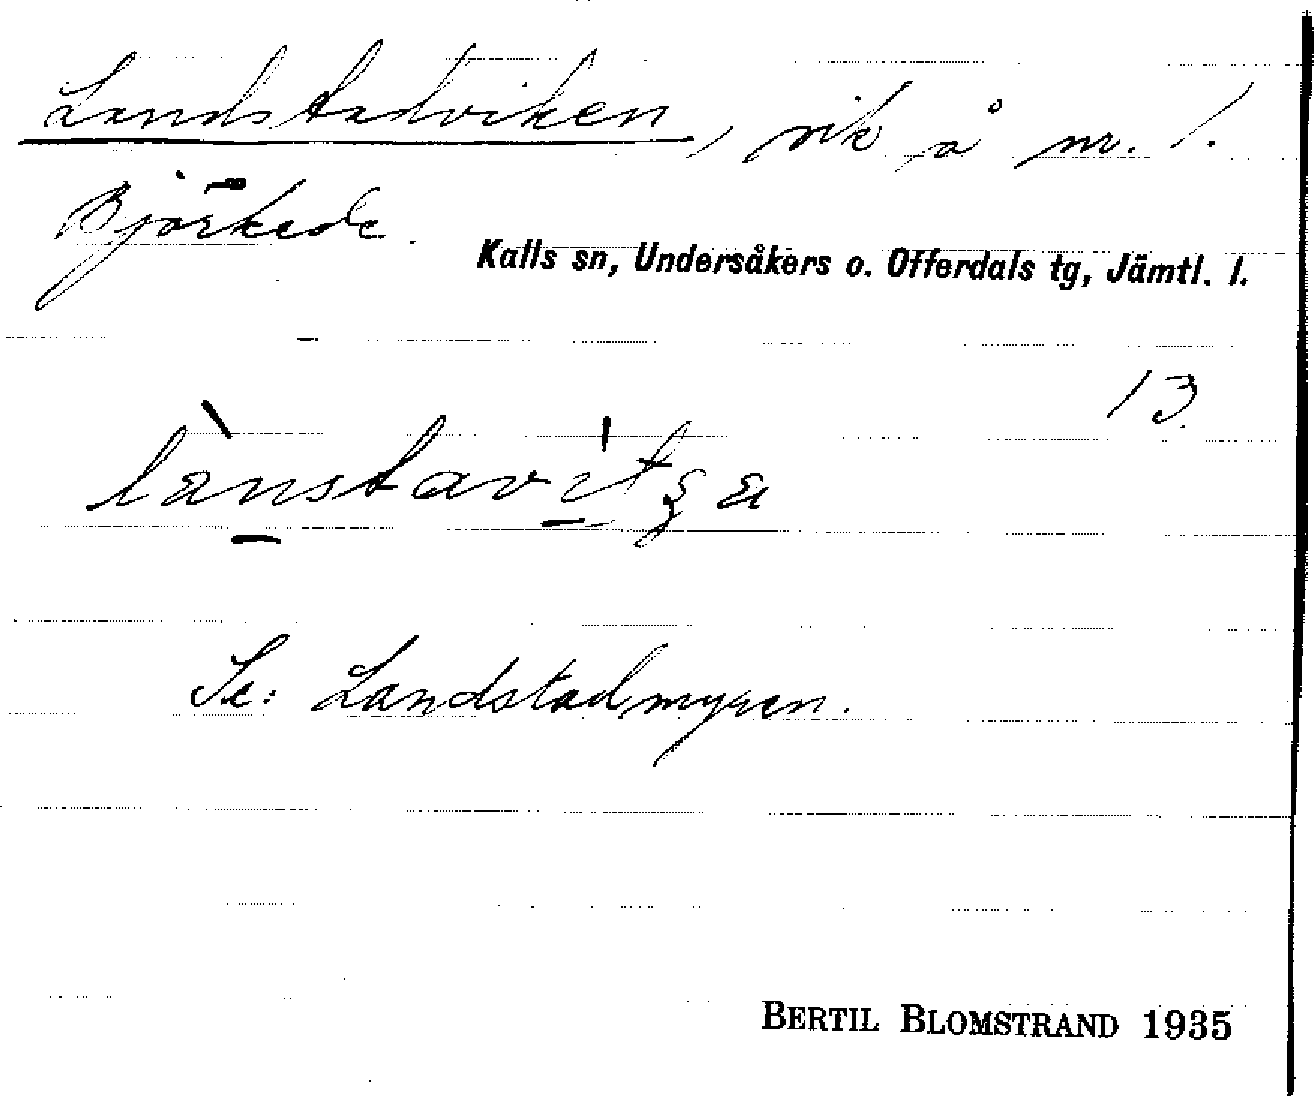 Landstadviken, vik å nr. 1.
Björkede.
Kalls sn, Undersåkers o. Offerdals tg, Jämtl. l.
13.
Se: Landstadmyren.
BERTIL BLOMSTRAND 1935